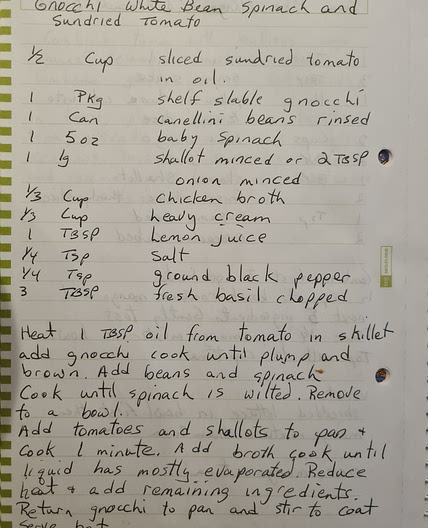 Gnocchi White Bean Spinach and
Sundried Tomato
1/2 Cup sliced sundried tomato
in oil.
1 PKg shelf slable gnocchi
1 Can canellini beans rinsed
1 5oz baby spinach
1 lg shallot minced or 2 TBSP
onion minced
1/3 Cup chicken broth
1/3 Cup heavy cream
1 TBSP Lemon juice
1/4 Tsp salt
1/4 Tsp ground black pepper
3 TBSP fresh basil chopped
Heat 1 TBSP oil from tomato in skillet
add gnocchi cook until plump and
brown. Add beans and spinach
Cook until spinach is wilted. Remove
to a bowl.
Add tomatoes and shallots to pan +
Cook 1 minute. Add broth cook until
liquid has mostly evaporated. Reduce
heat + add remaining ingredients.
Return gnocchi to pan and stir to coat
Serve hot